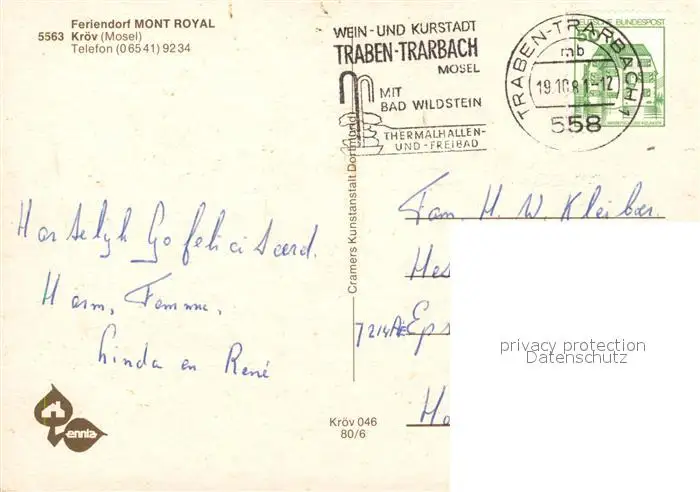 Feriendorf MONT ROYAL
5563 Kröv (Mosel)
Telefon (06541) 9234
WEIN-UND KURSTADT
TRABEN-TRARBACH
MOSEL
MIT
BAD WILDSTEIN
THERMALHALLEN-
UND-FREIBAD
TRABEN-TRARBACH 1
mb
19.10.81-12
558
DEUTSCHE BUNDESPOST
50
Cramers Kunstanstalt Dortmund
Hartelyk Gefeliciteerd.
Harm, Femma,
Linda en René
Fam. H. W. Kleiber.
Hes
7214 AE Eps
Ho
privacy protection
Datenschutz
ennia
Kröv 046
80/6